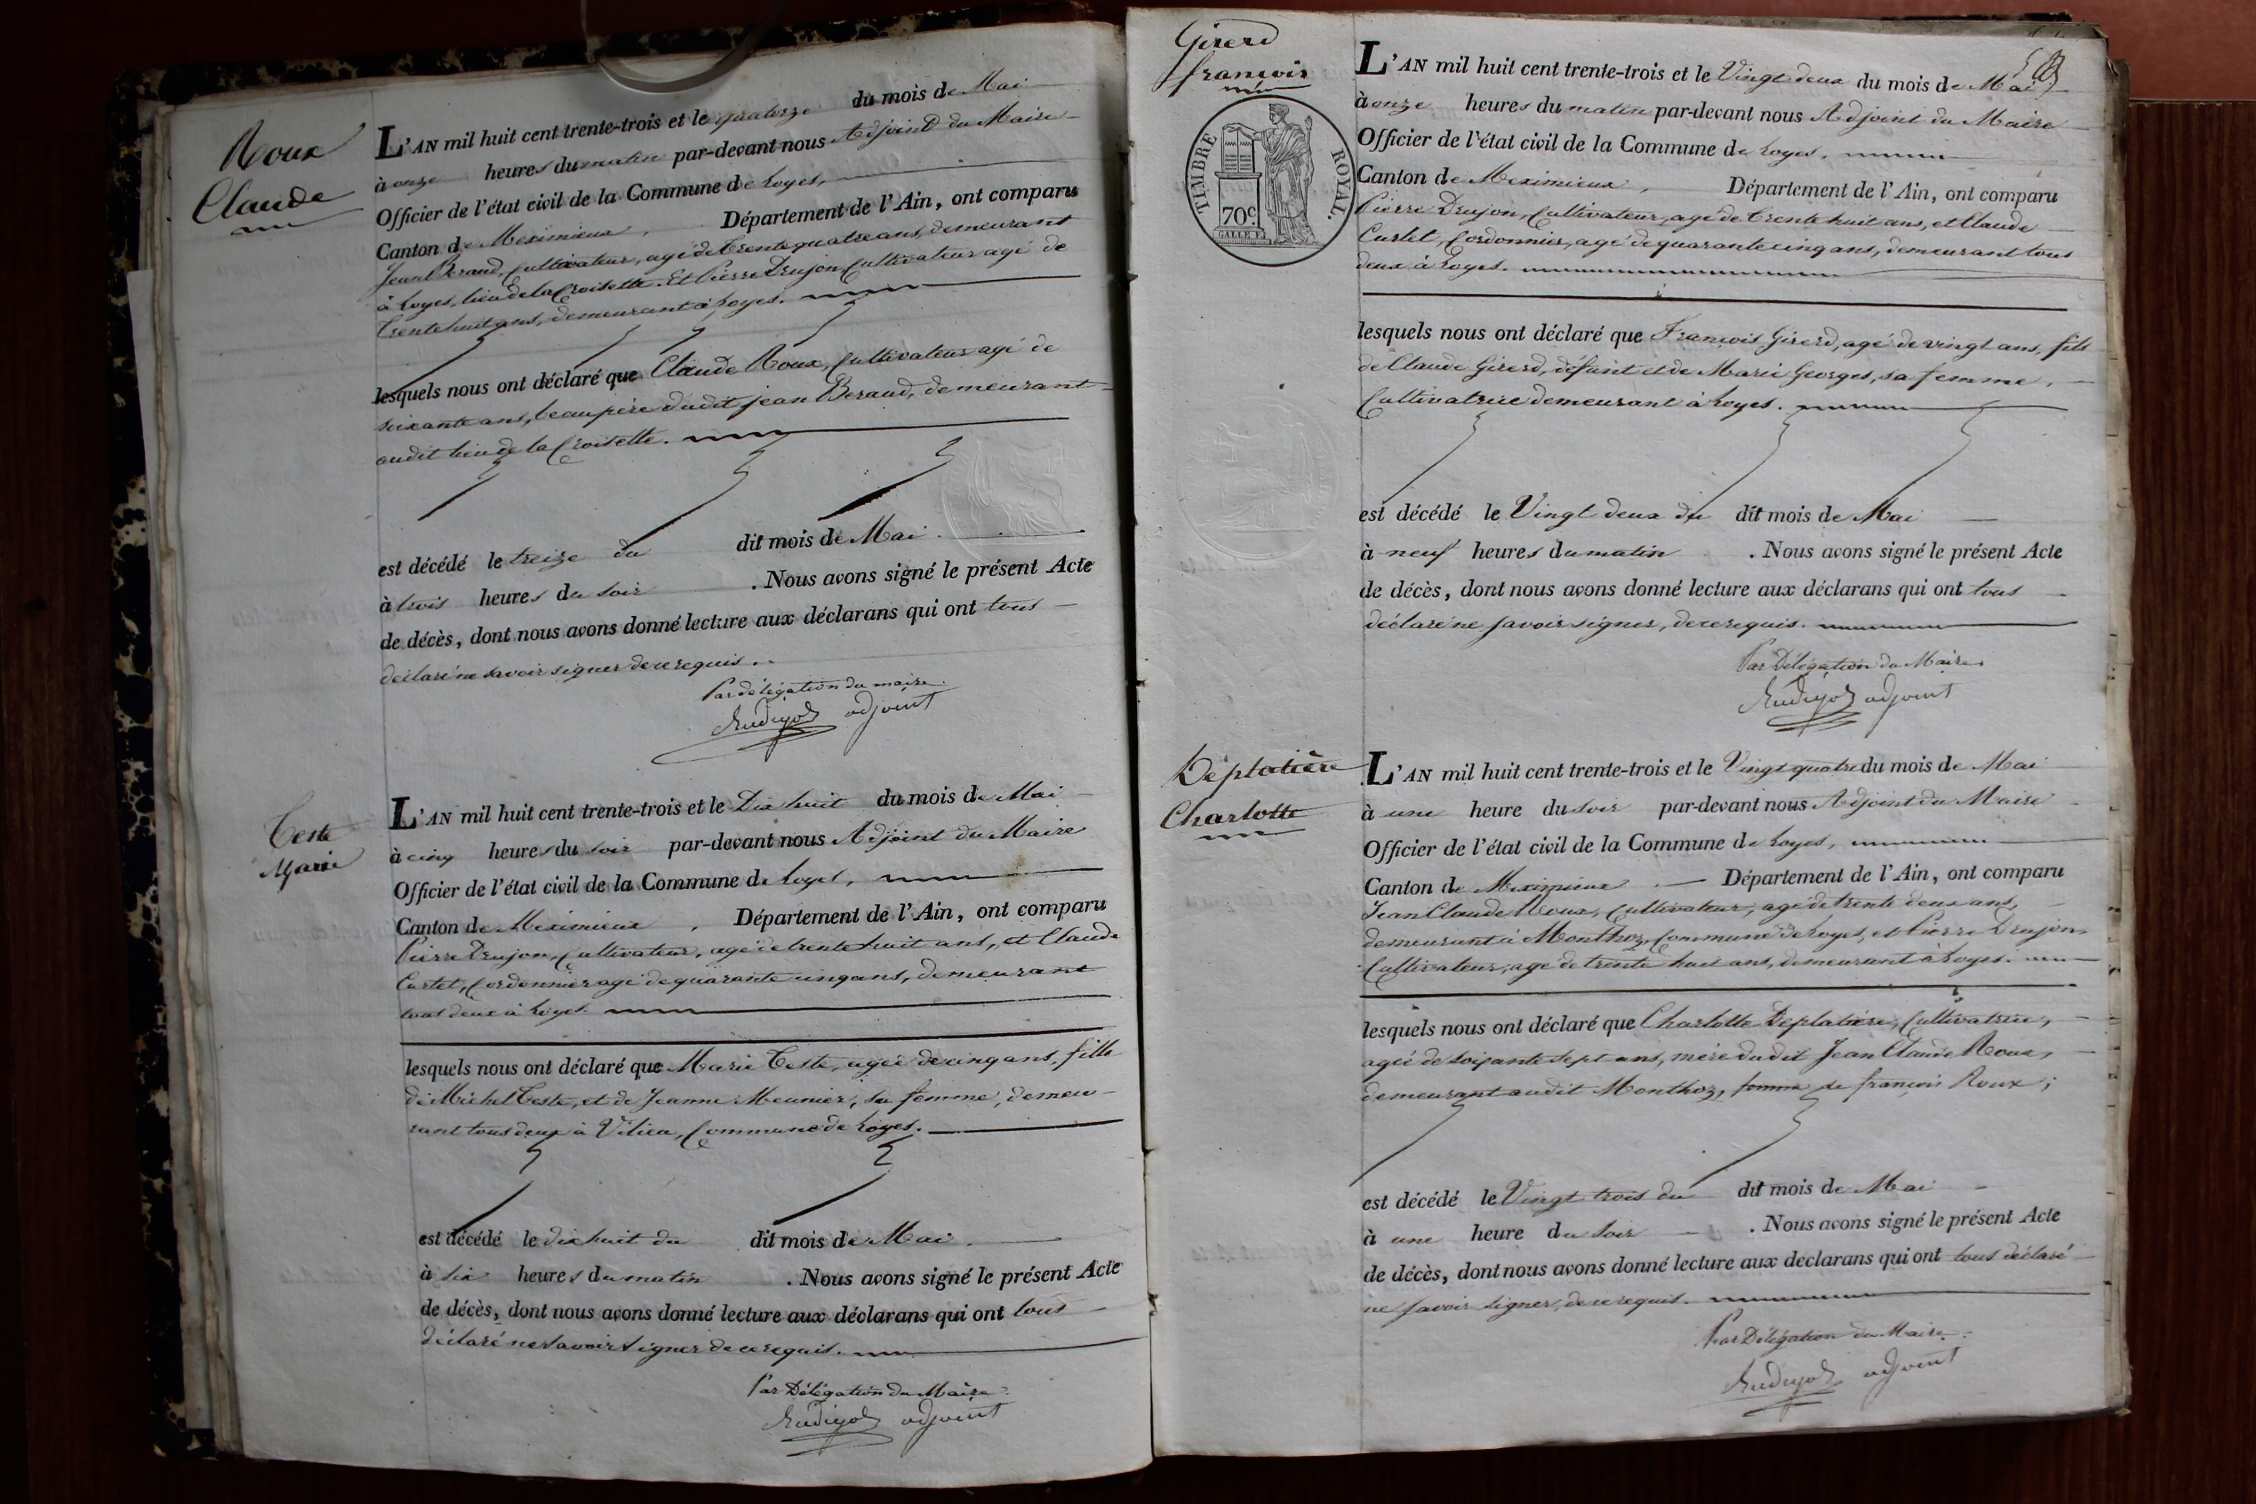 Roux
Claude
L'AN mil huit cent trente-trois et le quatorze du mois de Mai
à onze heures du matin par-devant nous Adjoint du Maire
Officier de l'état civil de la Commune de Loyes,
Canton de Meximieux, Département de l'Ain, ont comparu
Jean Beraud, Cultivateur, agé de trente quatre ans, demeurant
à Loyes, lieu de la Croisette. Et Pierre Drujon, Cultivateur agé de
trente huit ans, demeurant à Loyes.
lesquels nous ont déclaré que Claude Roux, Cultivateur agé de
soixante ans, beau père dudit jean Beraud, demeurant
audit lieu de la Croisette.
est décédé le treize du dit mois de Mai.
à trois heures du soir. Nous avons signé le présent Acte
de décès, dont nous avons donné lecture aux déclarans qui ont tous
déclaré ne savoir signer de ce requis.
Par délégation du maire.
adjoint
Teste
Marie
L'AN mil huit cent trente-trois et le Dix huit du mois de Mai
à cinq heures du soir par-devant nous Adjoint du Maire
Officier de l'état civil de la Commune de Loyes,
Canton de Meximieux, Département de l'Ain, ont comparu
Pierre Drujon, Cultivateur, agé de trente huit ans, et Claude
Curtet, Cordonnier agé de quarante cinq ans, demeurant
tous deux à Loyes.
lesquels nous ont déclaré que Marie Teste, agée de cinq ans, fille
de Michel Teste, et de Jeanne Meunier, sa femme, demeu-
rant tous deux à Vilieu, Commune de Loyes.
est décédé le dix huit du dit mois de Mai.
à six heures du matin. Nous avons signé le présent Acte
de décès, dont nous avons donné lecture aux déclarans qui ont tous
déclaré ne savoir signer de ce requis.
Par Délégation du Maire.
adjoint
Girerd
françois
TIMBRE ROYAL.
70c
L'AN mil huit cent trente-trois et le Vingt deux du mois de Mai
à onze heures du matin par-devant nous Adjoint du Maire
Officier de l'état civil de la Commune de Loyes.
Canton de Meximieux, Département de l'Ain, ont comparu
Pierre Drujon, Cultivateur, agé de trente huit ans, et Claude
Curtet, Cordonnier, agé de quarante cinq ans, demeurant tous
deux à Loyes.
lesquels nous ont déclaré que François Girerd, agé de vingt ans, fils
de Claude Girerd, défunt et de Marie Georges, sa femme,
Cultivatrice demeurant à Loyes.
est décédé le Vingt deux du dit mois de Mai
à neuf heures du matin. Nous avons signé le présent Acte
de décès, dont nous avons donné lecture aux déclarans qui ont tous
déclaré ne savoir signer, de ce requis.
Par Délégation du Maire.
adjoint
Déplatière
Charlotte
L'AN mil huit cent trente-trois et le Vingt quatre du mois de Mai
à une heure du soir par-devant nous Adjoint du Maire
Officier de l'état civil de la Commune de Loyes,
Canton de Meximieux. Département de l'Ain, ont comparu
Jean Claude Roux, Cultivateur, agé de trente deux ans,
demeurant à Monthoz, Commune de Loyes, et Pierre Drujon,
Cultivateur, agé de trente huit ans, demeurant à Loyes.
lesquels nous ont déclaré que Charlotte Déplatière, Cultivatrice,
agée de soixante sept ans, mère dudit Jean Claude Roux,
demeurant audit Monthoz, femme de françois Roux;
est décédé le Vingt trois du dit mois de Mai
à une heure du soir. Nous avons signé le présent Acte
de décès, dont nous avons donné lecture aux declarans qui ont tous déclaré
ne savoir signer, de ce requis.
Par Délégation du Maire.
adjoint